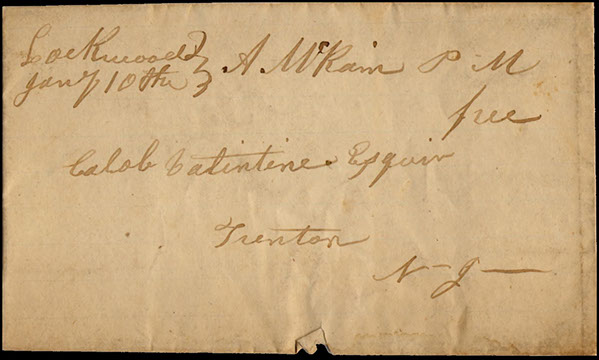 Lockwood } A. McKain P-M
Jany 10th }
free
Calob Valintine Esquir
Trenton
N-J-